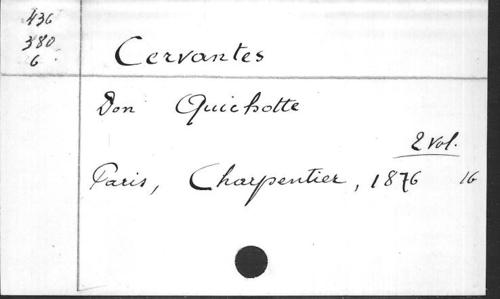 436
380
6
Cervantes
Don Quichotte
2 vol.
Paris, Charpentier, 1876 16